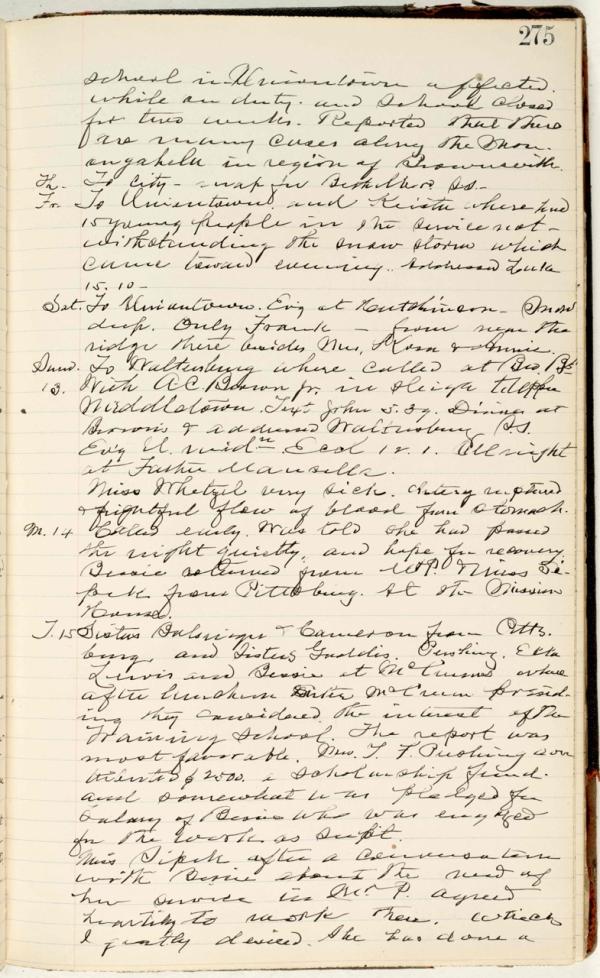 275
school in Uniontown affected
while on duty. and school closed
for two weeks. Reported that there
are many cases along the Mon-
ongahela in region of Brownsville.
Th. To City -
Fr. To Uniontown and where had
15 young people in the service not-
withstanding the snow storm which
came toward evening. Addressed Luke
15.10-
Sat. To Uniontown. Ev'g at Hutchinson - Snow
deep. Only Frank - from near the
ridge there besides Mrs. &
Sund. To Waltersburg where called at Bro.
13. With A.C. Brown Jr. in sleigh to
Middletown. Text John 5.39. Dinner at
Browns & addressed Waltersburg S.S.
Ev'g U. Eccl 12.1. All night
at Father
Miss Whetzel very sick. Artery ruptured
& frightful flow of blood from stomach.
M. 14 Called early. Was told she had passed
the night quietly, and hope for recovery.
Bessie returned from Mt P. & Miss Si-
pech from Pittsburg. At the Mission
House.
T. 15 Sisters & Cameron from Pitts-
burg, and Sisters Gaddis, Pushing, Etta
Lewis and Bessie at where
after luncheon Sister McCrum presid-
ing they considered the interest of the
Training School. The report was
most favorable. Mrs. T. F. Pushing don
$2000. a scholarship fund.
and somewhat was pledged for
salary of Bessie who was engaged
for the work as Supt.
Miss Sipech after a conversation
with Bessie about the need of
her service in Mt P. agreed
heartily to work there. Which
I greatly desired. She has done a